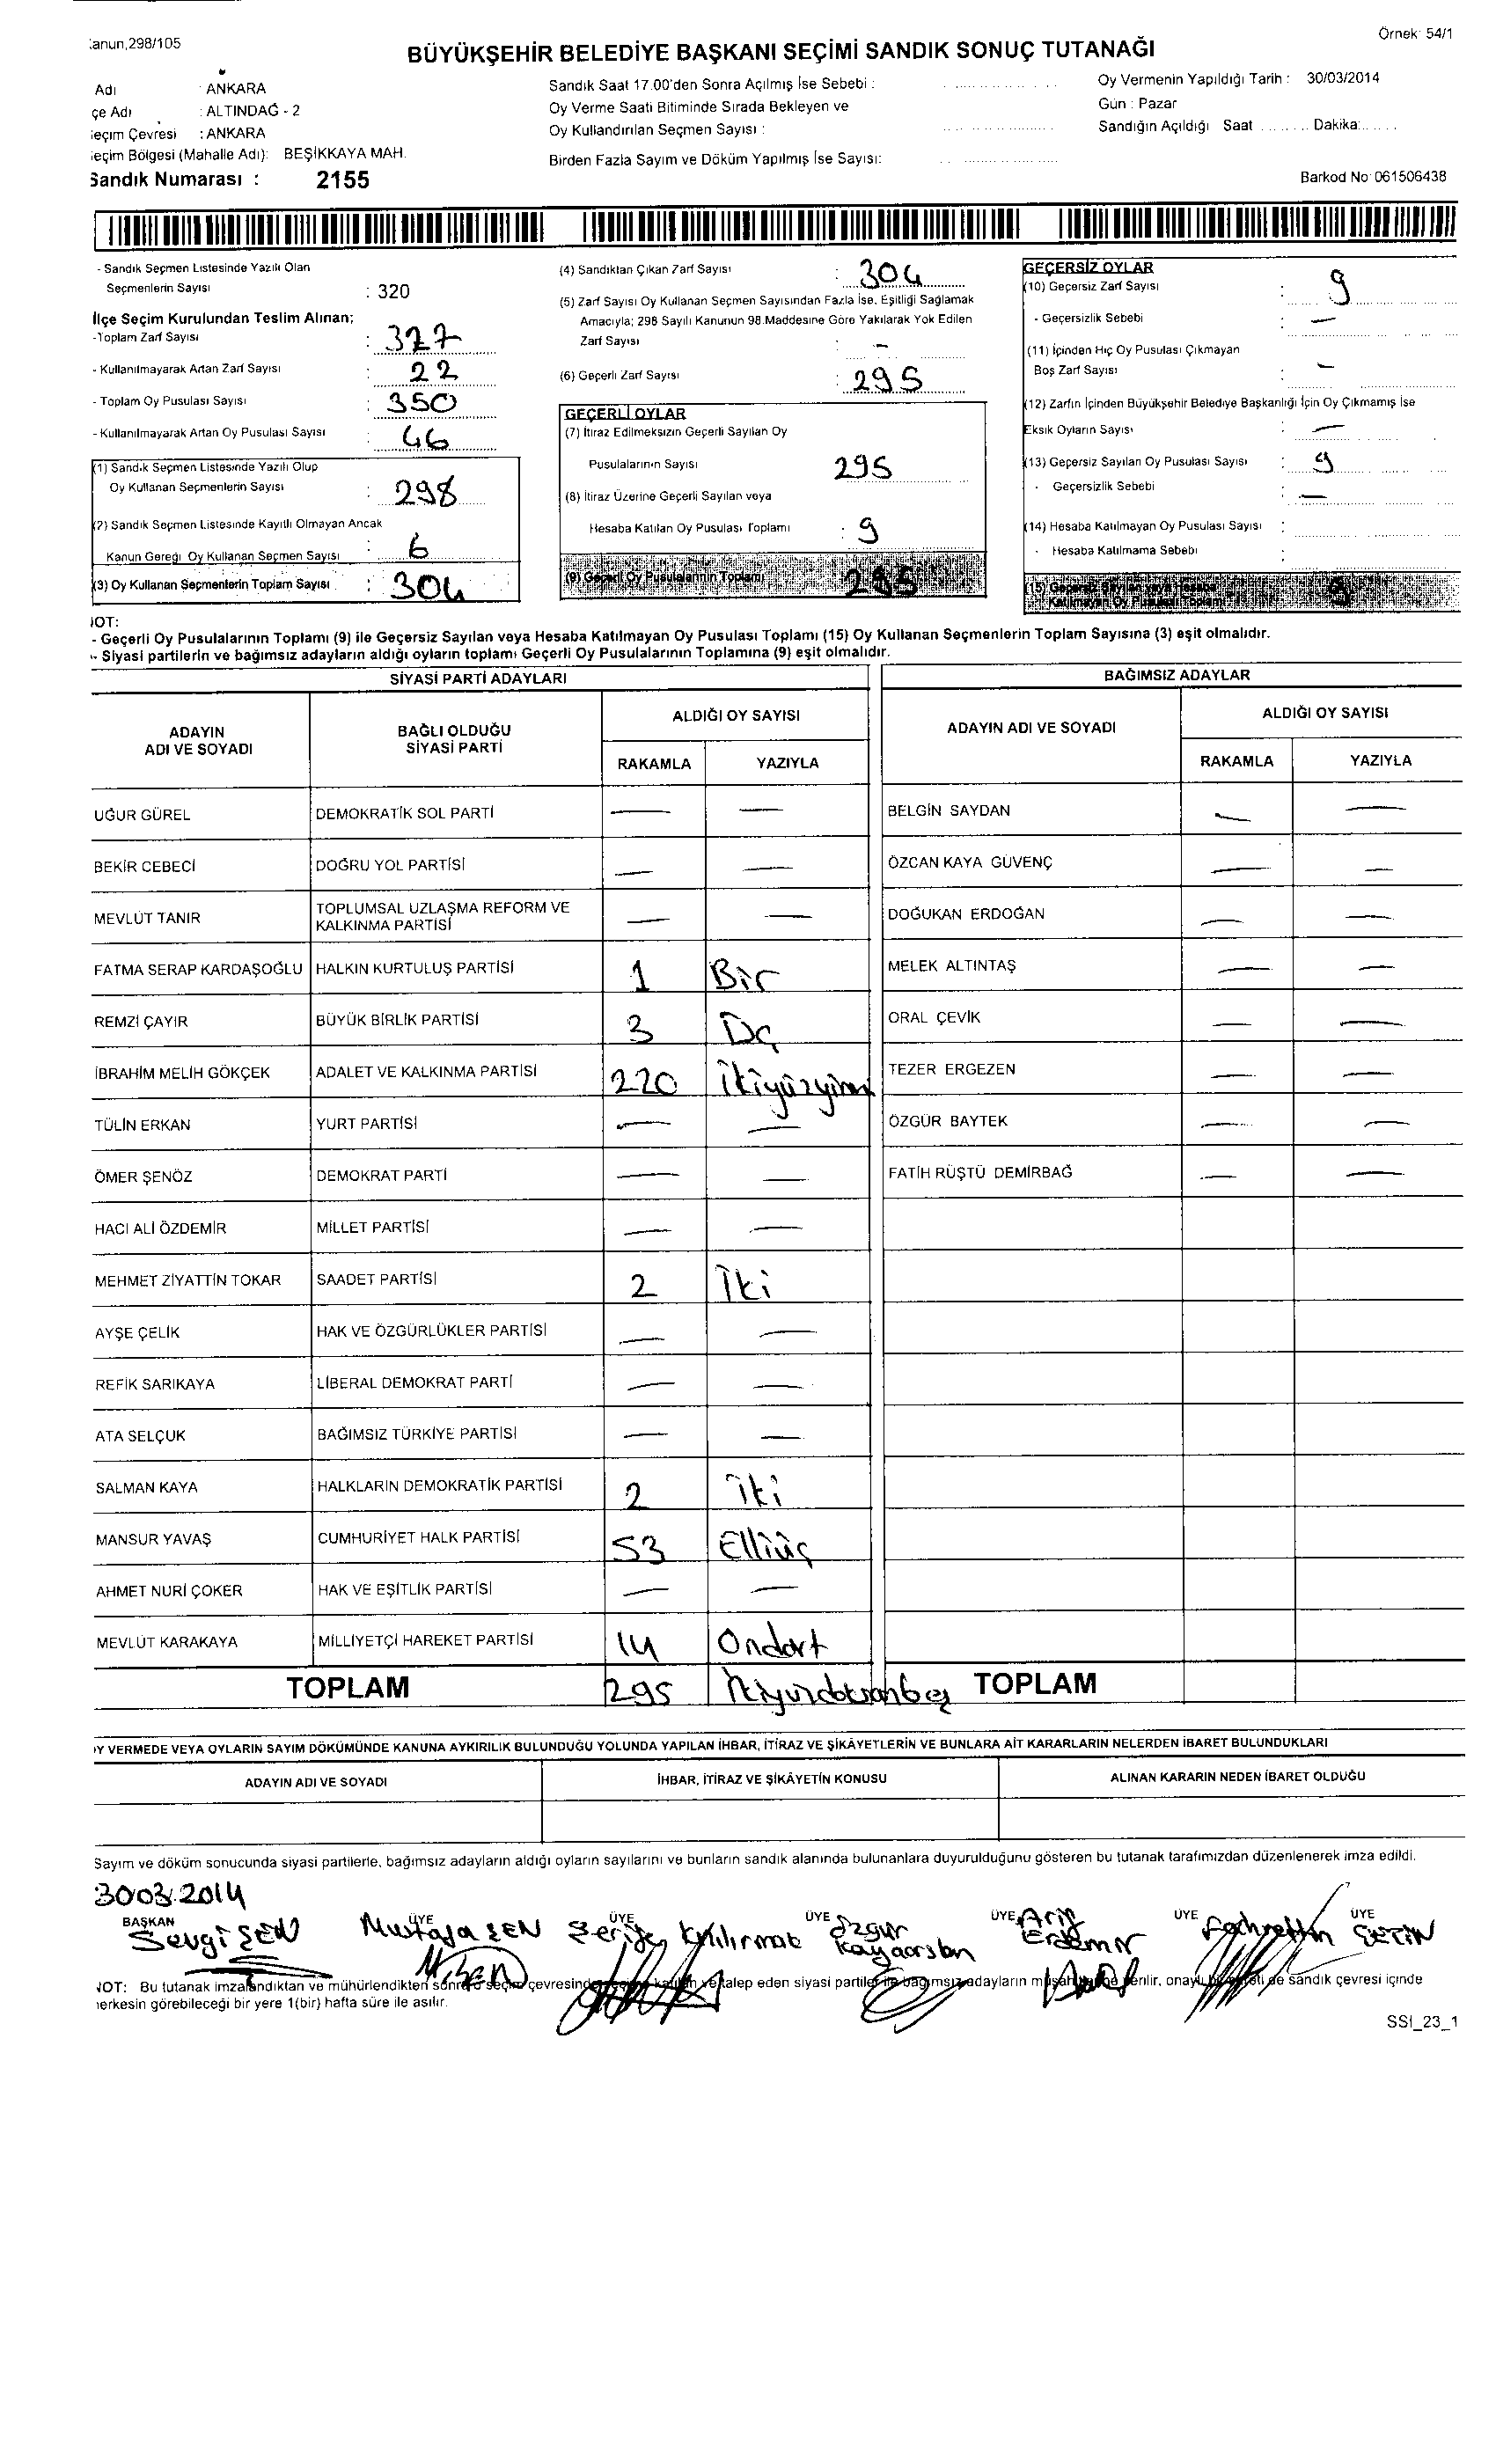 Kanun,298/105
Örnek: 54/1
BÜYÜKŞEHİR BELEDİYE BAŞKANI SEÇİMİ SANDIK SONUÇ TUTANAĞI
Adı : ANKARA
çe Adı : ALTINDAĞ - 2
eçim Çevresi : ANKARA
eçim Bölgesi (Mahalle Adı): BEŞİKKAYA MAH.
Sandık Numarası : 2155
Sandık Saat 17.00'den Sonra Açılmış İse Sebebi :
Oy Verme Saati Bitiminde Sırada Bekleyen ve
Oy Kullandırılan Seçmen Sayısı :
Birden Fazla Sayım ve Döküm Yapılmış İse Sayısı:
Oy Vermenin Yapıldığı Tarih : 30/03/2014
Gün : Pazar
Sandığın Açıldığı Saat ........ Dakika:......
Barkod No: 061506438
- Sandık Seçmen Listesinde Yazılı Olan
Seçmenlerin Sayısı : 320
İlçe Seçim Kurulundan Teslim Alınan;
-Toplam Zarf Sayısı : 327
- Kullanılmayarak Artan Zarf Sayısı : 22
- Toplam Oy Pusulası Sayısı : 350
- Kullanılmayarak Artan Oy Pusulası Sayısı : 46
(1) Sandık Seçmen Listesinde Yazılı Olup
Oy Kullanan Seçmenlerin Sayısı : 298
(2) Sandık Seçmen Listesinde Kayıtlı Olmayan Ancak
Kanun Gereği Oy Kullanan Seçmen Sayısı : 6
(3) Oy Kullanan Seçmenlerin Toplam Sayısı : 304
(4) Sandıktan Çıkan Zarf Sayısı : 304
(5) Zarf Sayısı Oy Kullanan Seçmen Sayısından Fazla İse, Eşitliği Sağlamak
Amacıyla; 298 Sayılı Kanunun 98.Maddesine Göre Yakılarak Yok Edilen
Zarf Sayısı : -
(6) Geçerli Zarf Sayısı : 295
GEÇERLİ OYLAR
(7) İtiraz Edilmeksizin Geçerli Sayılan Oy
Pusulalarının Sayısı 295
(8) İtiraz Üzerine Geçerli Sayılan veya
Hesaba Katılan Oy Pusulası Toplamı : 9
(9) Geçerli Oy Pusulalarının Toplamı 295
GEÇERSİZ OYLAR
(10) Geçersiz Zarf Sayısı : 9
- Geçersizlik Sebebi : -
(11) İçinden Hiç Oy Pusulası Çıkmayan
Boş Zarf Sayısı : -
(12) Zarfın İçinden Büyükşehir Belediye Başkanlığı İçin Oy Çıkmamış İse
Eksik Oyların Sayısı : -
(13) Geçersiz Sayılan Oy Pusulası Sayısı : 9
- Geçersizlik Sebebi : -
(14) Hesaba Katılmayan Oy Pusulası Sayısı :
- Hesaba Katılmama Sebebi :
(15) Geçersiz Sayılan veya Hesaba
Katılmayan Oy Pusulası Toplamı 9
NOT:
- Geçerli Oy Pusulalarının Toplamı (9) ile Geçersiz Sayılan veya Hesaba Katılmayan Oy Pusulası Toplamı (15) Oy Kullanan Seçmenlerin Toplam Sayısına (3) eşit olmalıdır.
- Siyasi partilerin ve bağımsız adayların aldığı oyların toplamı Geçerli Oy Pusulalarının Toplamına (9) eşit olmalıdır.
SİYASİ PARTİ ADAYLARI
ADAYIN ADI VE SOYADI
BAĞLI OLDUĞU SİYASİ PARTİ
ALDIĞI OY SAYISI
RAKAMLA YAZIYLA
UĞUR GÜREL DEMOKRATİK SOL PARTİ — —
BEKİR CEBECİ DOĞRU YOL PARTİSİ — —
MEVLÜT TANIR TOPLUMSAL UZLAŞMA REFORM VE KALKINMA PARTİSİ — —
FATMA SERAP KARDAŞOĞLU HALKIN KURTULUŞ PARTİSİ 1 Bir
REMZİ ÇAYIR BÜYÜK BİRLİK PARTİSİ 3 Üç
İBRAHİM MELİH GÖKÇEK ADALET VE KALKINMA PARTİSİ 220 İkiyüzyirmi
TÜLİN ERKAN YURT PARTİSİ — —
ÖMER ŞENÖZ DEMOKRAT PARTİ — —
HACI ALİ ÖZDEMİR MİLLET PARTİSİ — —
MEHMET ZİYATTİN TOKAR SAADET PARTİSİ 2 İki
AYŞE ÇELİK HAK VE ÖZGÜRLÜKLER PARTİSİ — —
REFİK SARIKAYA LİBERAL DEMOKRAT PARTİ — —
ATA SELÇUK BAĞIMSIZ TÜRKİYE PARTİSİ — —
SALMAN KAYA HALKLARIN DEMOKRATİK PARTİSİ 2 iki
MANSUR YAVAŞ CUMHURİYET HALK PARTİSİ 53 Elliüç
AHMET NURİ ÇOKER HAK VE EŞİTLİK PARTİSİ — —
MEVLÜT KARAKAYA MİLLİYETÇİ HAREKET PARTİSİ 14 Ondört
TOPLAM 295 İkiyüzdoksanbeş
BAĞIMSIZ ADAYLAR
ADAYIN ADI VE SOYADI
ALDIĞI OY SAYISI
RAKAMLA YAZIYLA
BELGİN SAYDAN — —
ÖZCAN KAYA GÜVENÇ — —
DOĞUKAN ERDOĞAN — —
MELEK ALTINTAŞ — —
ORAL ÇEVİK — —
TEZER ERGEZEN — —
ÖZGÜR BAYTEK — —
FATİH RÜŞTÜ DEMİRBAĞ — —
TOPLAM
OY VERMEDE VEYA OYLARIN SAYIM DÖKÜMÜNDE KANUNA AYKIRILIK BULUNDUĞU YOLUNDA YAPILAN İHBAR, İTİRAZ VE ŞİKÂYETLERİN VE BUNLARA AİT KARARLARIN NELERDEN İBARET BULUNDUKLARI
ADAYIN ADI VE SOYADI İHBAR, İTİRAZ VE ŞİKÂYETİN KONUSU ALINAN KARARIN NEDEN İBARET OLDUĞU
Sayım ve döküm sonucunda siyasi partilerle, bağımsız adayların aldığı oyların sayılarını ve bunların sandık alanında bulunanlara duyurulduğunu gösteren bu tutanak tarafımızdan düzenlenerek imza edildi.
30.03.2014
BAŞKAN ÜYE ÜYE ÜYE ÜYE ÜYE ÜYE
Sevgi ŞEN Mustafa ŞEN Şerife Özgür Kayaarslan Arif Erdemir Fahrettin ÇETİN
NOT: Bu tutanak imzalandıktan ve mühürlendikten sonra o seçim çevresinde seçime katılan ve talep eden siyasi partiler ile bağımsız adayların müşahitlerine verilir, onaylı bir sureti de sandık çevresi içinde
herkesin görebileceği bir yere 1(bir) hafta süre ile asılır.
SSI_23_1